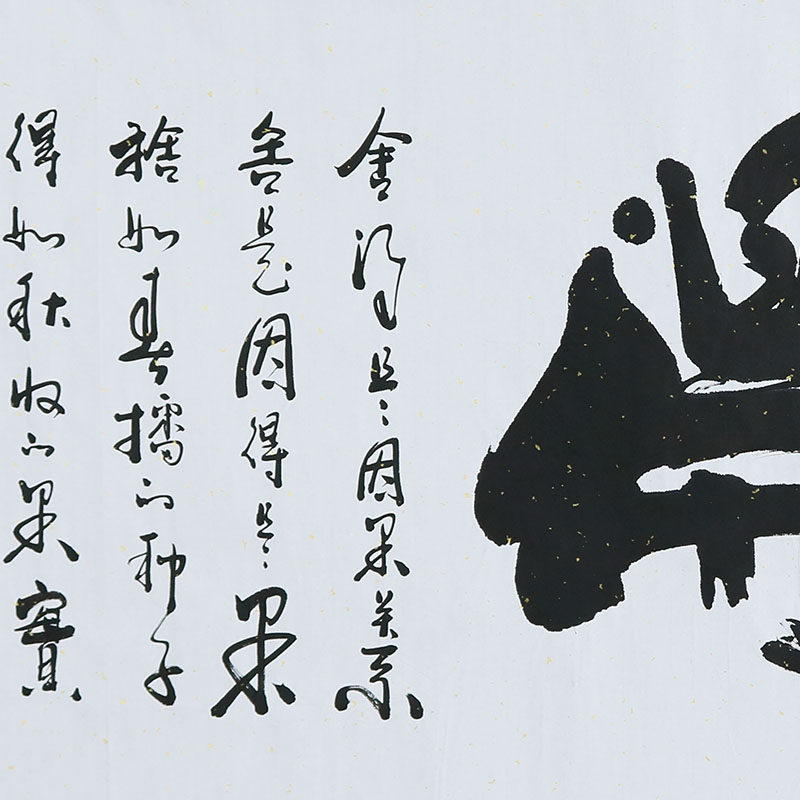 舍得是因果关系
舍是因得是果
捨如春播的种子
得如秋收的果實